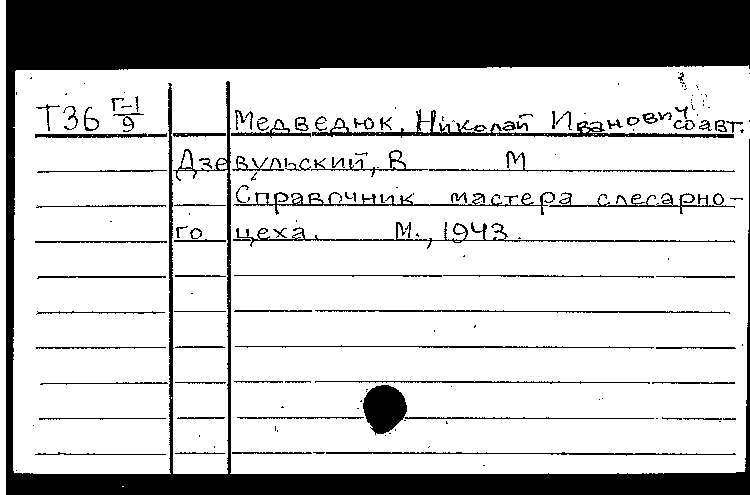 Т36 Г-1/9 Медведюк, Николай Иванович соавт.
Дзевульский, В М
Справочник мастера слесарно-
го цеха. М., 1943.